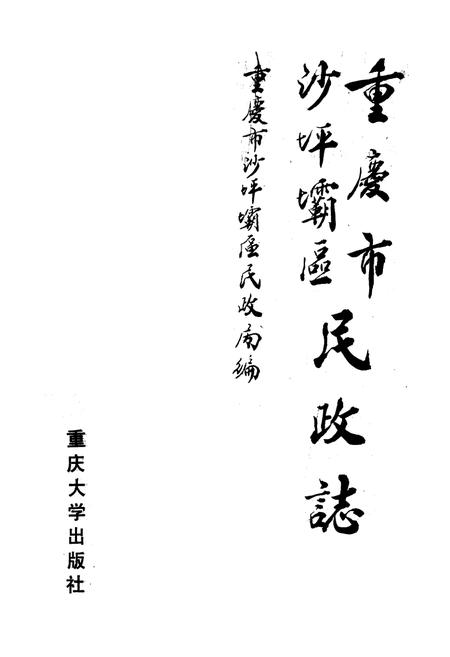 重慶市
沙坪壩區
民政誌
重慶市沙坪壩區民政局编
重庆大学出版社